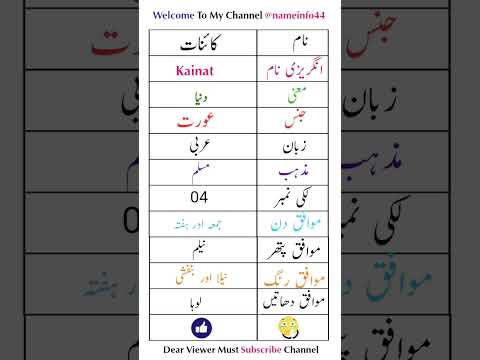 Welcome To My Channel @nameinfo44
نام کائنات
انگریزی نام Kainat
معنی دنیا
جنس عورت
زبان عربی
مذہب مسلم
لکی نمبر 04
موافق دن جمعہ اور ہفتہ
موافق پتھر نیلم
موافق رنگ نیلا اور بنفشی
موافق دھاتیں لوہا
Dear Viewer Must Subscribe Channel